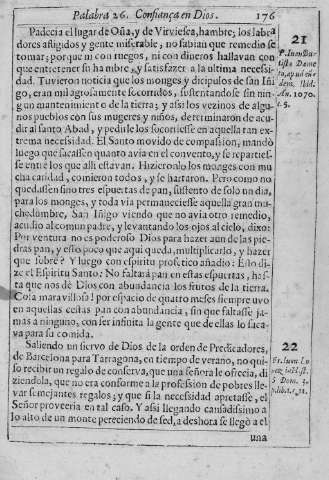 Palabra 26. Confiança en Dios. 176
Padecia el lugar de Oña, y de Virviesca, hambre; los labra
dores afligidos y gente miserable, no sabian que remedio se
tomar; porque ni con ruegos, ni con dineros hallavan con
que entretener su hambre, y satisfazer a la ultima necessi-
dad. Tuvieron noticia que los monges y dicipulos de san Iñi
go, eran milagrosamente socorridos, sustentandose sin nin-
gun mantenimiento de la tierra; y assi los vezinos de algu-
nos pueblos con sus mugeres y niños, determinaron de acu-
dir al santo Abad, y pedirle los socorriesse en aquella tan ex-
trema necessidad. El Santo movido de compassion, mandò
luego que sacassen quanto avia en el convento, y se reparties-
se entre los que alli estavan. Hizieronlo los monges con mu
cha caridad, comieron todos, y se hartaron. Pero como no
quedassen sino tres espuertas de pan, sustento de solo un dia,
para los monges, y toda via permaneciesse aquella gran mu-
chedumbre, San Iñigo viendo que no avia otro remedio,
acudio al comun padre, y levantando los ojos al cielo, dixo:
Por ventura no es poderoso Dios para hazer aun de las pie-
dras pan, y esso poco que aqui queda, multiplicarlo, y hazer
que sobre? Y luego con espiritu profetico añadio: Esto di-
ze el Espiritu Santo: No faltarà pan en estas espuertas, has-
ta que nos dè Dios con abundancia los frutos de la tierra.
Cosa maravillosa! por espacio de quatro meses siempre uvo
en aquellas cestas pan con abundancia, sin que faltasse ja-
mas a ninguno, con ser infinita la gente que de ellas lo saca-
va para su comida.
Saliendo un siervo de Dios de la orden de Predicadores,
de Barcelona para Tarragona, en tiempo de verano, no qui-
so recibir un regalo de conserva, que una señora le ofrecia, di
ziendola, que no era conforme a la profession de pobres lle-
var semejantes regalos; y que si la necessidad apretasse, el
Señor proveeria en tal caso. Y assi llegando cansadissimo a
lo alto de un monte pereciendo de sed, a deshora se llegò a el
una
21
Año. 1070.
c. 9.
22